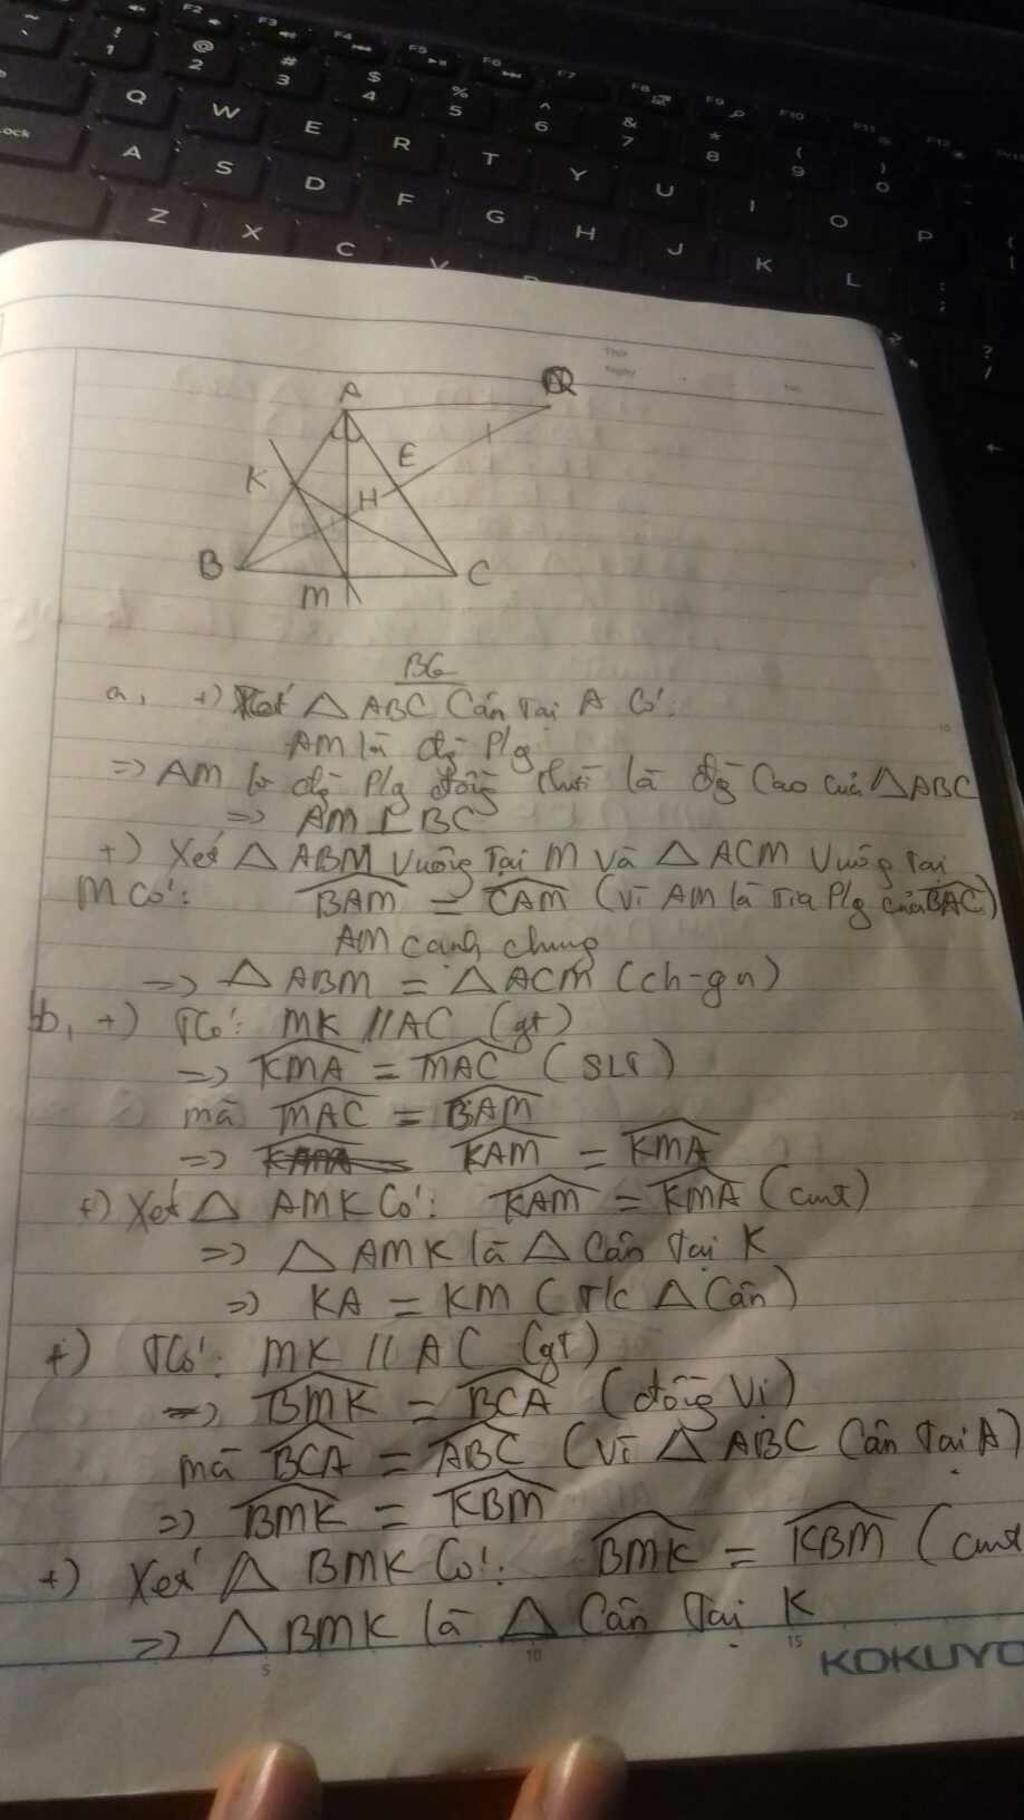 F2 F3 F4 F5 F6 F7 F8 F9 F10 F11 F12
! 1 @ 2 # 3 $ 4 % 5 ^ 6 & 7 * 8 ( 9 ) 0
Q W E R T Y U I O P
Lock A S D F G H J K L : ;
Z X C V
Thứ
Ngày
No.
A Q
K E
H
B C
M
BG
a, +) Xét △ ABC Cân tại A Có:
AM là đg P/g
=> AM là đg P/g đồng thời là đg Cao của △ABC
=> AM ⊥ BC
+) Xét △ ABM Vuông tại M và △ ACM Vuông tại
M Có: BAM = CAM (Vì AM là tia P/g của BAC)
AM cạnh chung
=> △ ABM = △ ACM (ch-gn)
b, +) TCó: MK // AC (gt)
=> KMA = MAC (SLT)
mà MAC = BAM
=> KAM = KMA
+) Xét △ AMK Có: KAM = KMA (cmt)
=> △ AMK là △ Cân tại K
=> KA = KM (T/c △ Cân)
+) TCó: MK // AC (gt)
=> BMK = BCA (đồng Vị)
mà BCA = ABC (Vì △ ABC Cân tại A)
=> BMK = KBM
+) Xét △ BMK Có: BMK = KBM (cmt
=> △ BMK là △ Cân tại K
5 10 15
KOKUYO